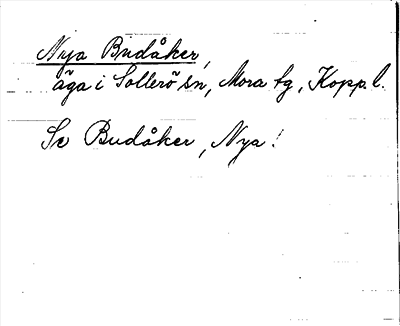 Nya Budåker,
äga i Sollerö sn, Mora tg, Kopp. l.
Se Budåker, Nya!